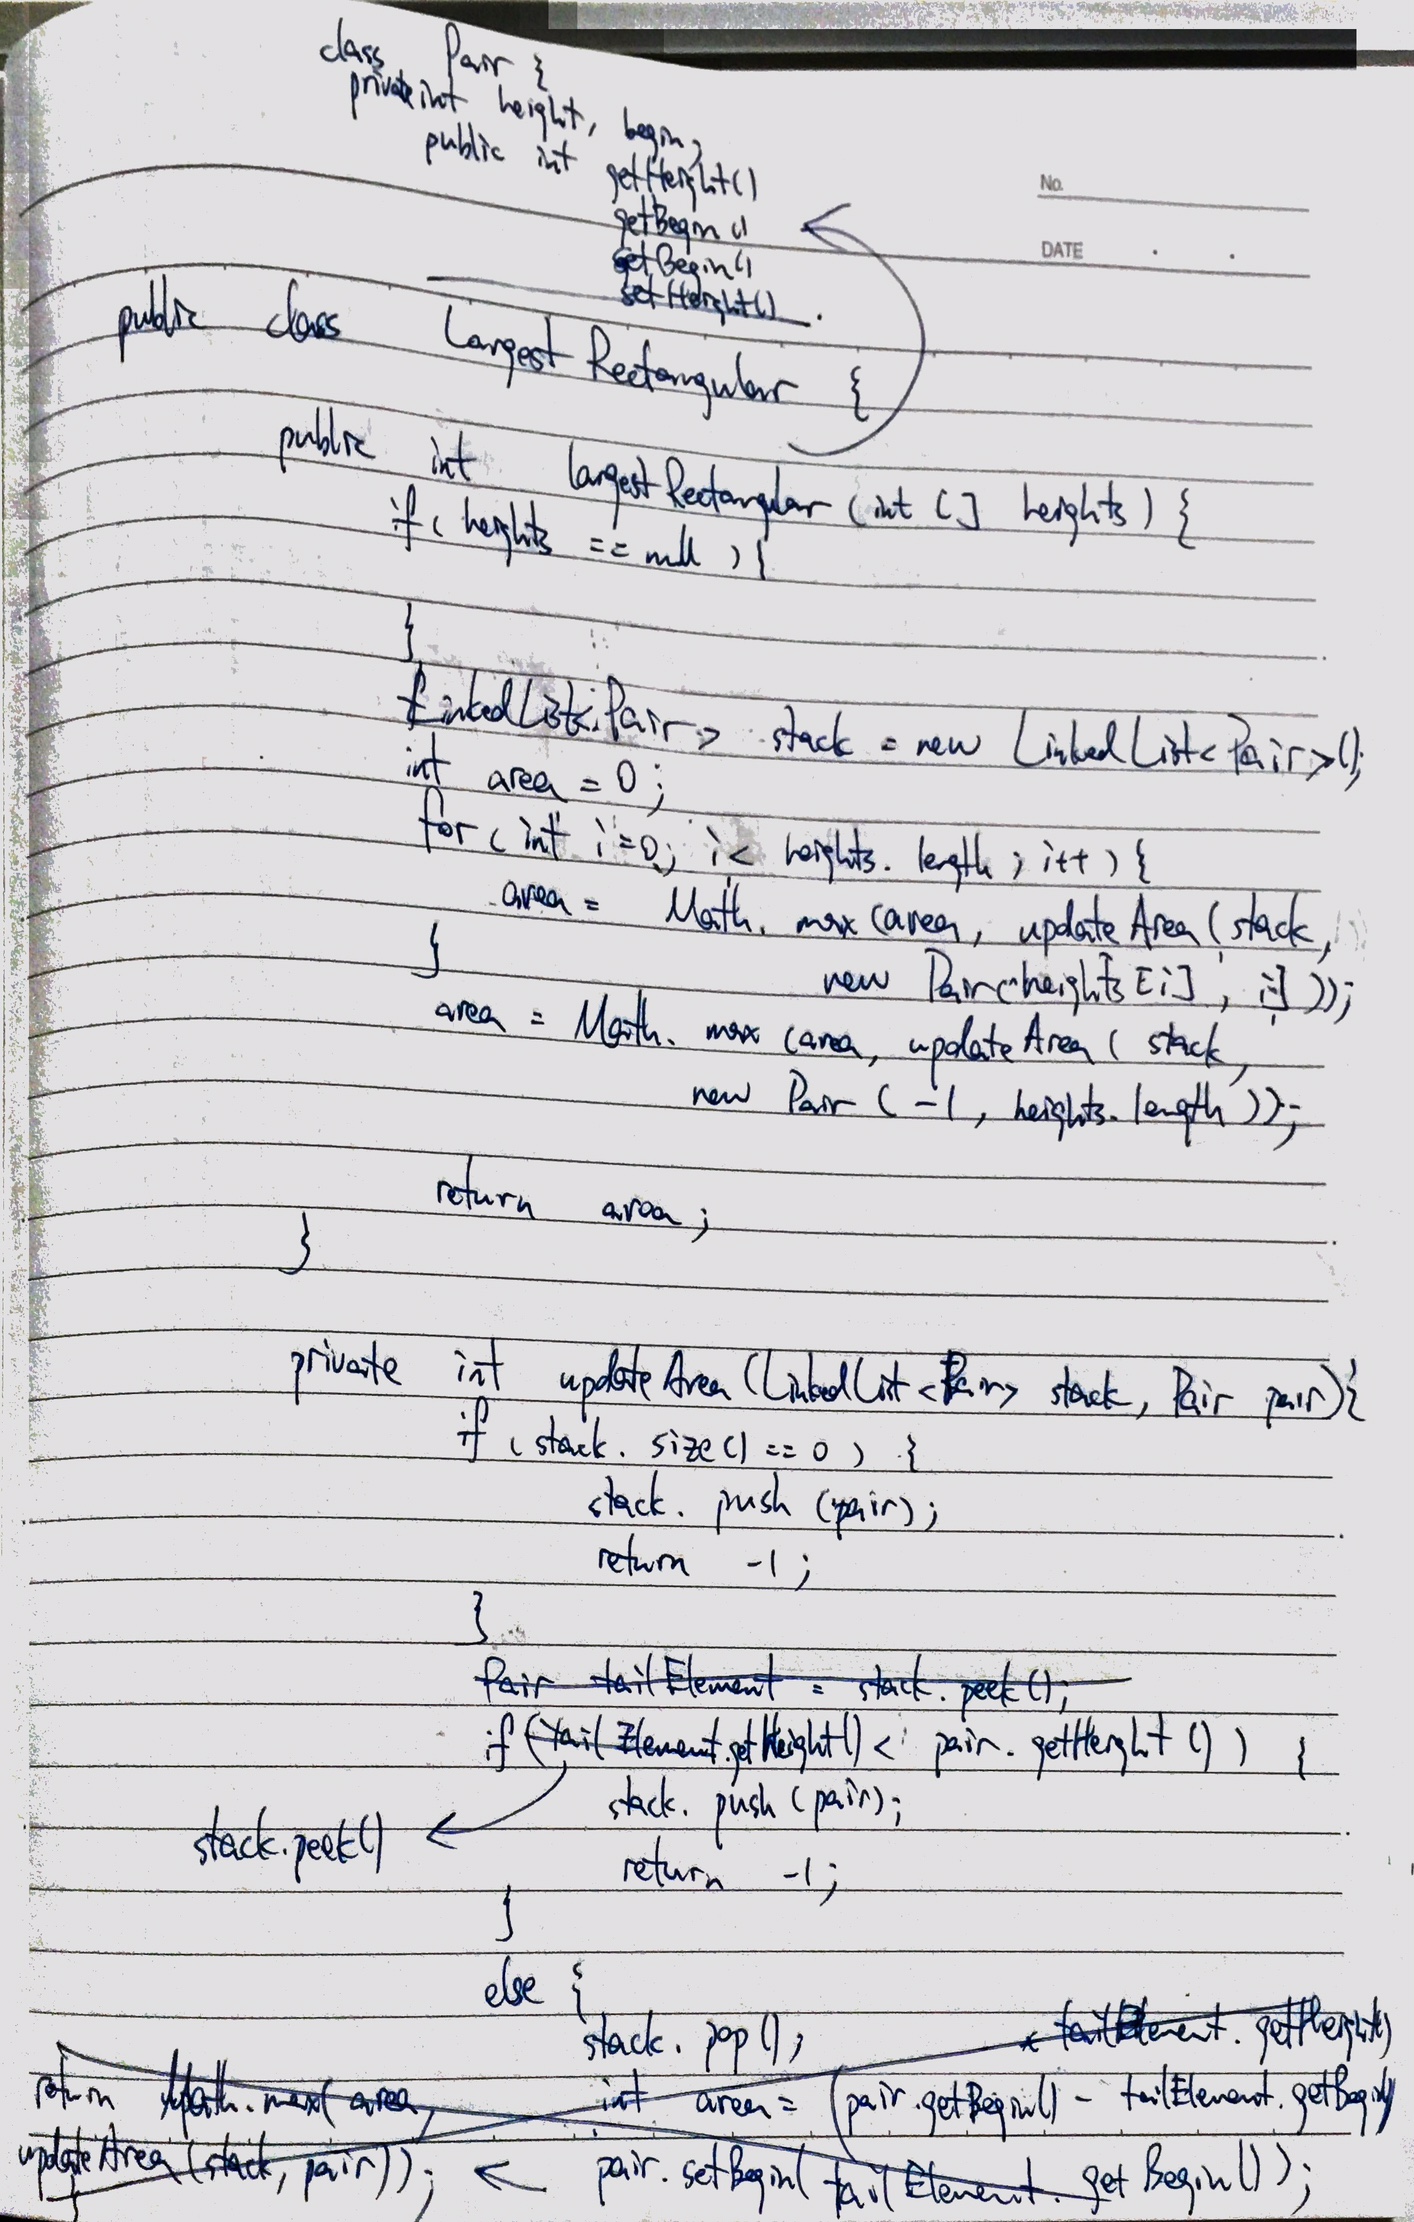 class Pair {
private int height, begin;
public int getHeight()
getBegin()
setBegin()
setHeight()
No.
DATE
public class LargestRectangular {
public int largestRectangular (int [] heights) {
if ( heights == null ) {
}
LinkedList<Pair> stack = new LinkedList<Pair>();
int area = 0;
for ( int i=0; i< heights. length ; i++ ) {
area = Math. max (area, updateArea (stack,
new Pair (heights [i] , i ));
}
area = Math. max (area, updateArea ( stack,
new Pair ( -1, heights. length ));
return area;
}
private int updateArea (LinkedList <Pair> stack, Pair pair) {
if ( stack. size() == 0 ) {
stack. push (pair);
return -1;
}
Pair tailElement = stack. peek ();
if (tailElement.getHeight() < pair. getHeight () ) {
stack. push (pair);
stack.peek()
return -1;
}
else {
stack. pop ();
* tailElement. getHeight()
int area = (pair.getBegin() - tailElement.getBegin()
pair. setBegin( tailElement. getBegin());
return Math.max( area,
updateArea (stack, pair));
}